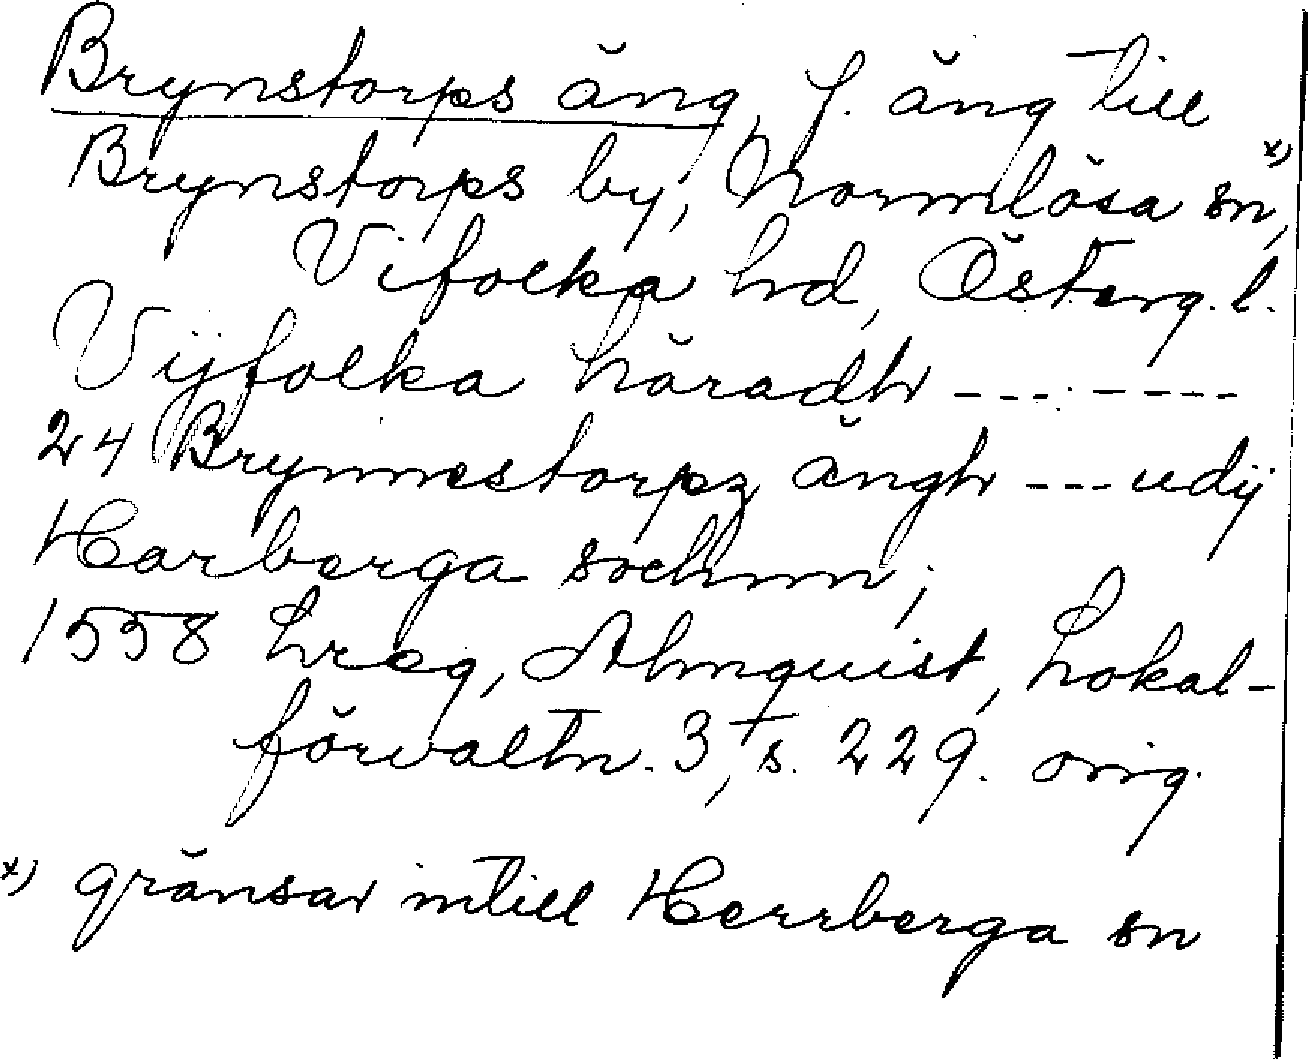 Brynstorps äng, f. äng till
Brynstorps by, Normlösa sn, x)
Vifolka hd, Österg. l.
Vijfolka häradh --- ----
24 Brynnestorpz ängh --- udij
Harberga sochnn;
1558 hreg, Almquist, Lokal-
förvaltn. 3, s. 229. orig.
x) gränsar intill Herrberga sn